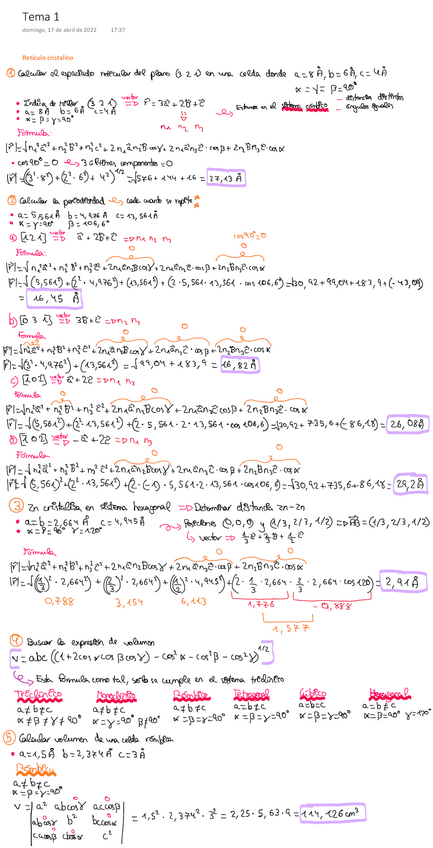 Tema 1
domingo, 17 de abril de 2022 17:37
Retículo cristalino
① Calcular el espaciado reticular del plano (3 2 1) en una celda donde a=8Å, b=6Å, c=4Å
α=γ=β=90°
• Índice de Miller (3 2 1) vector => r̄ = 3ā+2b̄+c̄
• a=8Å b=6Å c=4Å
• α=β=γ=90°
n₁ n₂ n₃
Estamos en el sistema rómbico
distancias distintas
ángulos iguales
Fórmula:
|r̄|=√n₁²ā²+n₂²b̄²+n₃²c̄²+2n₁ān₂b̄cosγ+2n₁ān₃c̄·cosβ+2n₂b̄n₃c̄·cosα
• cos90°=0 → 3 últimos componentes=0
|r̄|=((3²·8²)+(2²·6²)+4²)^1/2=√576+144+16=27,13Å
② Calcular la periodicidad → cada cuanto se repite
• a=5,561Å b=4,976Å c=13,561Å
• α=γ=90° β=106,6°
a) [1 2 1] vector => ā+2b̄+c̄ => n₁ n₂ n₃
cos90°=0
Fórmula:
|r̄|=√n₁²ā²+n₂²b̄²+n₃²c̄²+2n₁ān₂b̄cosγ+2n₁ān₃c̄·cosβ+2n₂b̄n₃c̄·cosα
|r̄|=√(5,561²)+(2²·4,976²)+(13,561²)+(2·5,561·13,561·cos106,6°)=√30,92+99,04+183,9+(-43,09)
=16,45 Å
b) [0 3 1] vector => 3b̄+c̄ => n₂ n₃
Fórmula
|r̄|=√n₁²ā²+n₂²b̄²+n₃²c̄²+2n₁ān₂b̄cosγ+2n₁ān₃c̄·cosβ+2n₂b̄n₃c̄·cosα
|r̄|=√(3²·4,976²)+(13,561²)=√99,04+183,9=16,82Å
c) [1 0 2] vector => ā+2c̄ => n₁ n₃
Fórmula:
|r̄|=√n₁²ā²+n₂²b̄²+n₃²c̄²+2n₁ān₂b̄cosγ+2n₁ān₃c̄cosβ+2n₂b̄n₃c̄·cosα
|r̄|=√(5,561²)+(2²·13,561²)+(2·5,561·2·13,561·cos106,6)=√30,92+735,6+(-86,18)=26,08Å
-ā+2c̄ => n₁ n₃
Fórmula:
|r̄|=√n₁²ā²+n₂²b̄²+n₃²c̄²+2n₁ān₂b̄cosγ+2n₁ān₃c̄·cosβ+2n₂b̄n₃c̄·cosα
|r̄|=√(5,561)²+(2²·13,561²)+(2·(-1)·5,561·2·13,561·cos106,6)=√30,92+735,6+86,18=29,2Å
③ Zn cristaliza en sistema hexagonal => Determinar distancia Zn-Zn
• a=b=2,664Å c=4,945Å
• α=β=90° γ=120°
Posiciones (0,0,0) y (1/3, 2/3, 1/2) => AB=(1/3, 2/3, 1/2)
vector => 1/3ā+2/3b̄+1/2c̄
Fórmula
|r̄|=√n₁²ā²+n₂²b̄²+n₃²c̄²+2n₁ān₂b̄cosγ+2n₁ān₃c̄·cosβ+2n₂b̄n₃c̄·cosα
|r̄|=√((1/3)²·2,664²)+((2/3)²·2,664²)+((1/2)²·4,945²)+(2·1/3·2,664·2/3·2,664·cos120)=2,91Å
0,788 3,154 6,113 1,776 -0,888
1,577
④ Buscar la expresión de volumen
V=abc((1+2cosαcosβcosγ)-cos²α-cos²β-cos²γ)^1/2
Esta fórmula como tal, solo se cumple en el sistema triclínico
Triclínico Monoclínico Rómbico Tetragonal Cúbico Hexagonal
a≠b≠c a≠b≠c a≠b≠c a=b≠c a=b=c a=b≠c
α≠β≠γ≠90° α=γ=90° β≠90° α=β=γ=90° α=β=γ=90° α=β=γ=90° α=β=90° γ=120°
⑤ Calcular volumen de una celda rómbica
• a=1,5Å b=2,374Å c=3Å
Rómbico
a≠b≠c
α=β=γ=90°
V=|a² abcosγ accosβ
abcosγ b² bccosα
cacosβ bccosα c²| =1,5²·2,374²·3²=2,25·5,63·9=114,126cm³